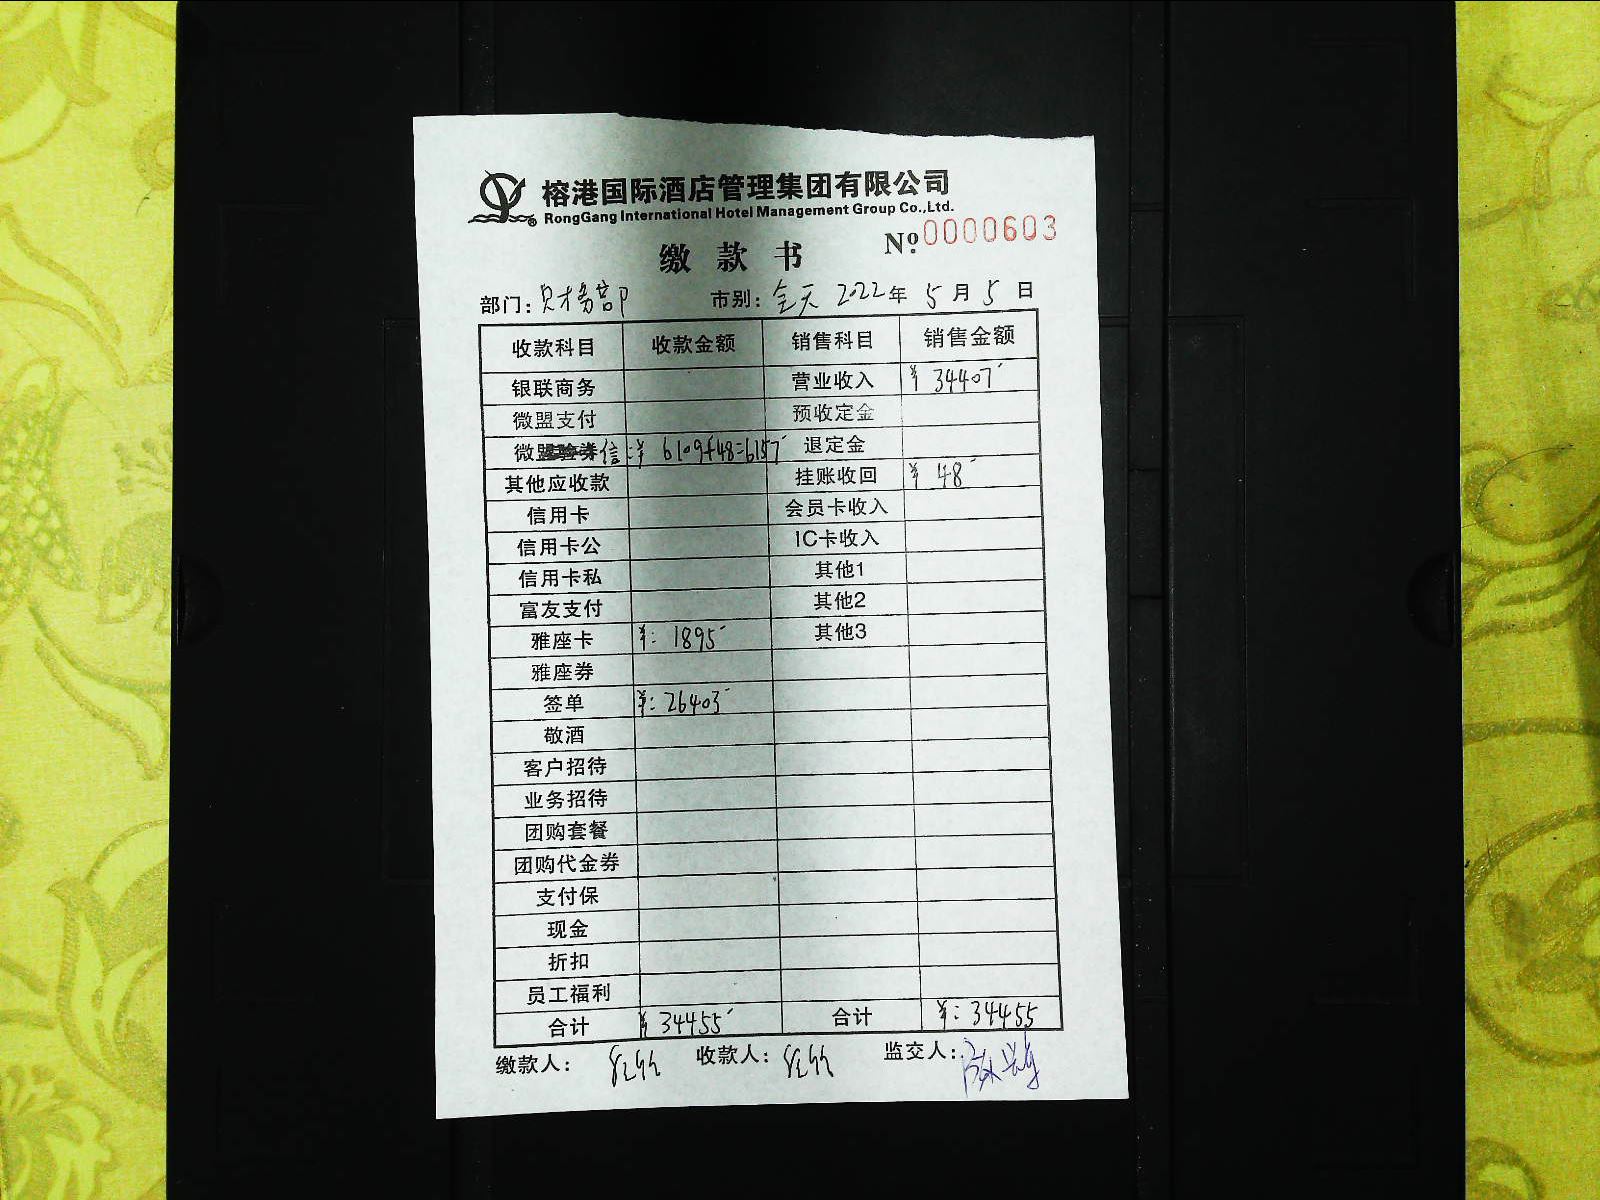 榕港国际酒店管理集团有限公司
RongGang International Hotel Management Group Co.,Ltd.
缴款书 Nº:0000603
部门:财务部 市别:全天 2022年5月5日
收款科目 收款金额 销售科目 销售金额
银联商务 营业收入 ¥34407
微盟支付 预收定金
微信:¥6109+48=6157 退定金
其他应收款 挂账收回 ¥48
信用卡 会员卡收入
信用卡公 IC卡收入
信用卡私 其他1
富友支付 其他2
雅座卡 ¥:1895 其他3
雅座券
签单 ¥:26403
敬酒
客户招待
业务招待
团购套餐
团购代金券
支付保
现金
折扣
员工福利
合计 ¥34455 合计 ¥:34455
缴款人: 收款人: 监交人: